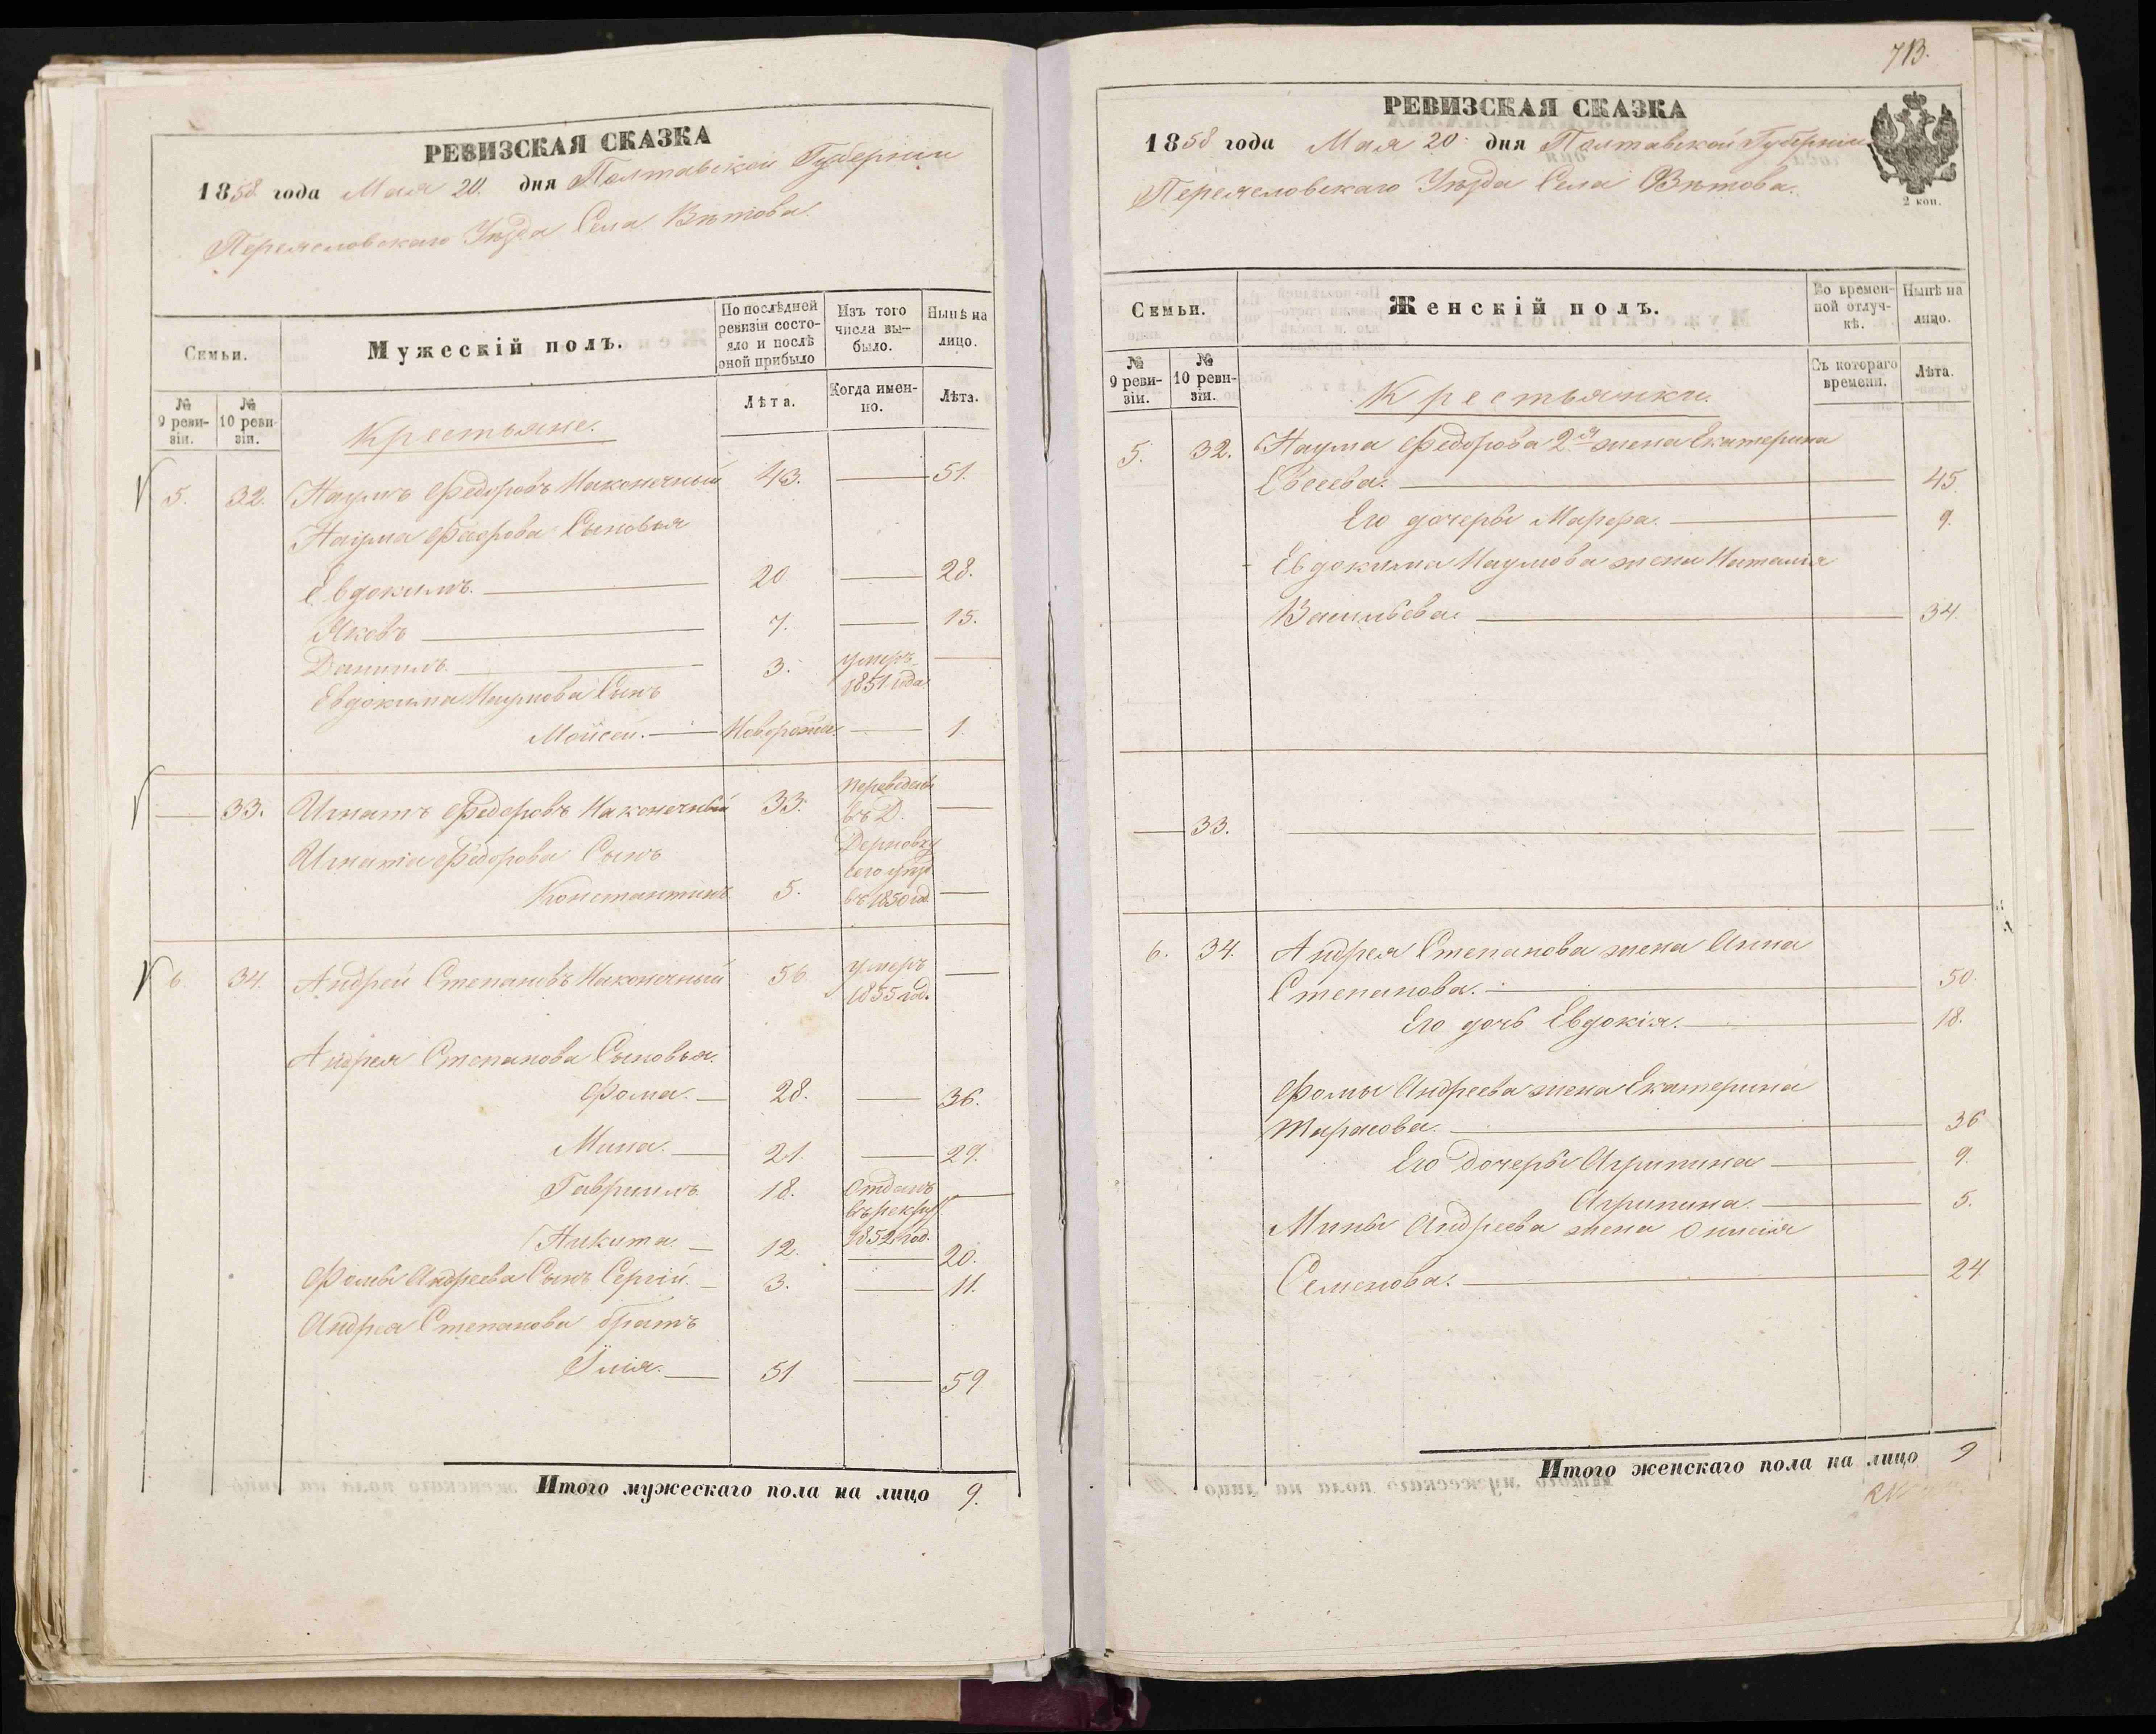 РЕВИЗСКАЯ СКАЗКА
1858 года Мая 20. дня Полтавской Губернии
Переяславскаго Уѣзда Села Вѣтова.
Семьи.
Мужескій полъ.
По послѣдней ревизіи состояло и послѣ оной прибыло
Изъ того числа вы-было.
Нынѣ на лицо.
№ 9 реви-зіи.
№ 10 реви-зіи.
Лѣта.
Когда имен-но.
Лѣта.
Крестьяне.
5. 32. Наумъ Федоровъ Наконечный 43. — 51.
Наума Федорова Сыновья
Евдокимъ. 20 — 28.
Яковъ 7. — 15.
Даніилъ. 3. умеръ 1851 года —
Евдокима Наумова Сынъ
Мойсей. — Новорожд. — 1.
— 33. Игнатъ Федоровъ Наконечный 33. переведенъ —
въ Д.
Игната Федорова Сынъ
Константинъ 5. въ 1850 год. —
6. 34. Андрей Степановъ Наконечный 56 умеръ —
1855 год.
Андрея Степанова Сыновья.
Фома. — 28. — 36.
Мина. — 21. — 29.
Гавриилъ. 18. Отданъ —
въ рекруты
1852 год.
Никита — 12. — 20.
Фомы Андреева Сынъ Сергій. — 3. — 11.
Андрея Степанова братъ
Илія. — 51 — 59
Итого мужескаго пола на лицо 9.
713.
РЕВИЗСКАЯ СКАЗКА
1858 года Мая 20. дня Полтавской Губерніи
Переяславскаго Уѣзда Села Вѣтова.
2 коп.
Семьи.
Женскій полъ.
Во времен-ной отлуч-кѣ.
Нынѣ на лицо.
№ 9 реви-зіи.
№ 10 реви-зіи.
Съ котораго времени.
Лѣта.
Крестьянки.
5. 32. Наума Федорова 2я жена Екатерина
Евсеева. — 45
Его дочерь Марфа. — 9.
Евдокима Наумова жена Наталія
Васильева — 34.
— 33. — — —
6. 34. Андрея Степанова жена Анна
Степанова. — 50.
Его дочь Евдокія. — 18.
Фомы Андреева жена Екатерина
Тарасова. — 36
Его дочерь Агрипина — 9.
Агрипина. — 5.
Мины Андреева жена
Семенова. — 24
Итого женскаго пола на лицо 9